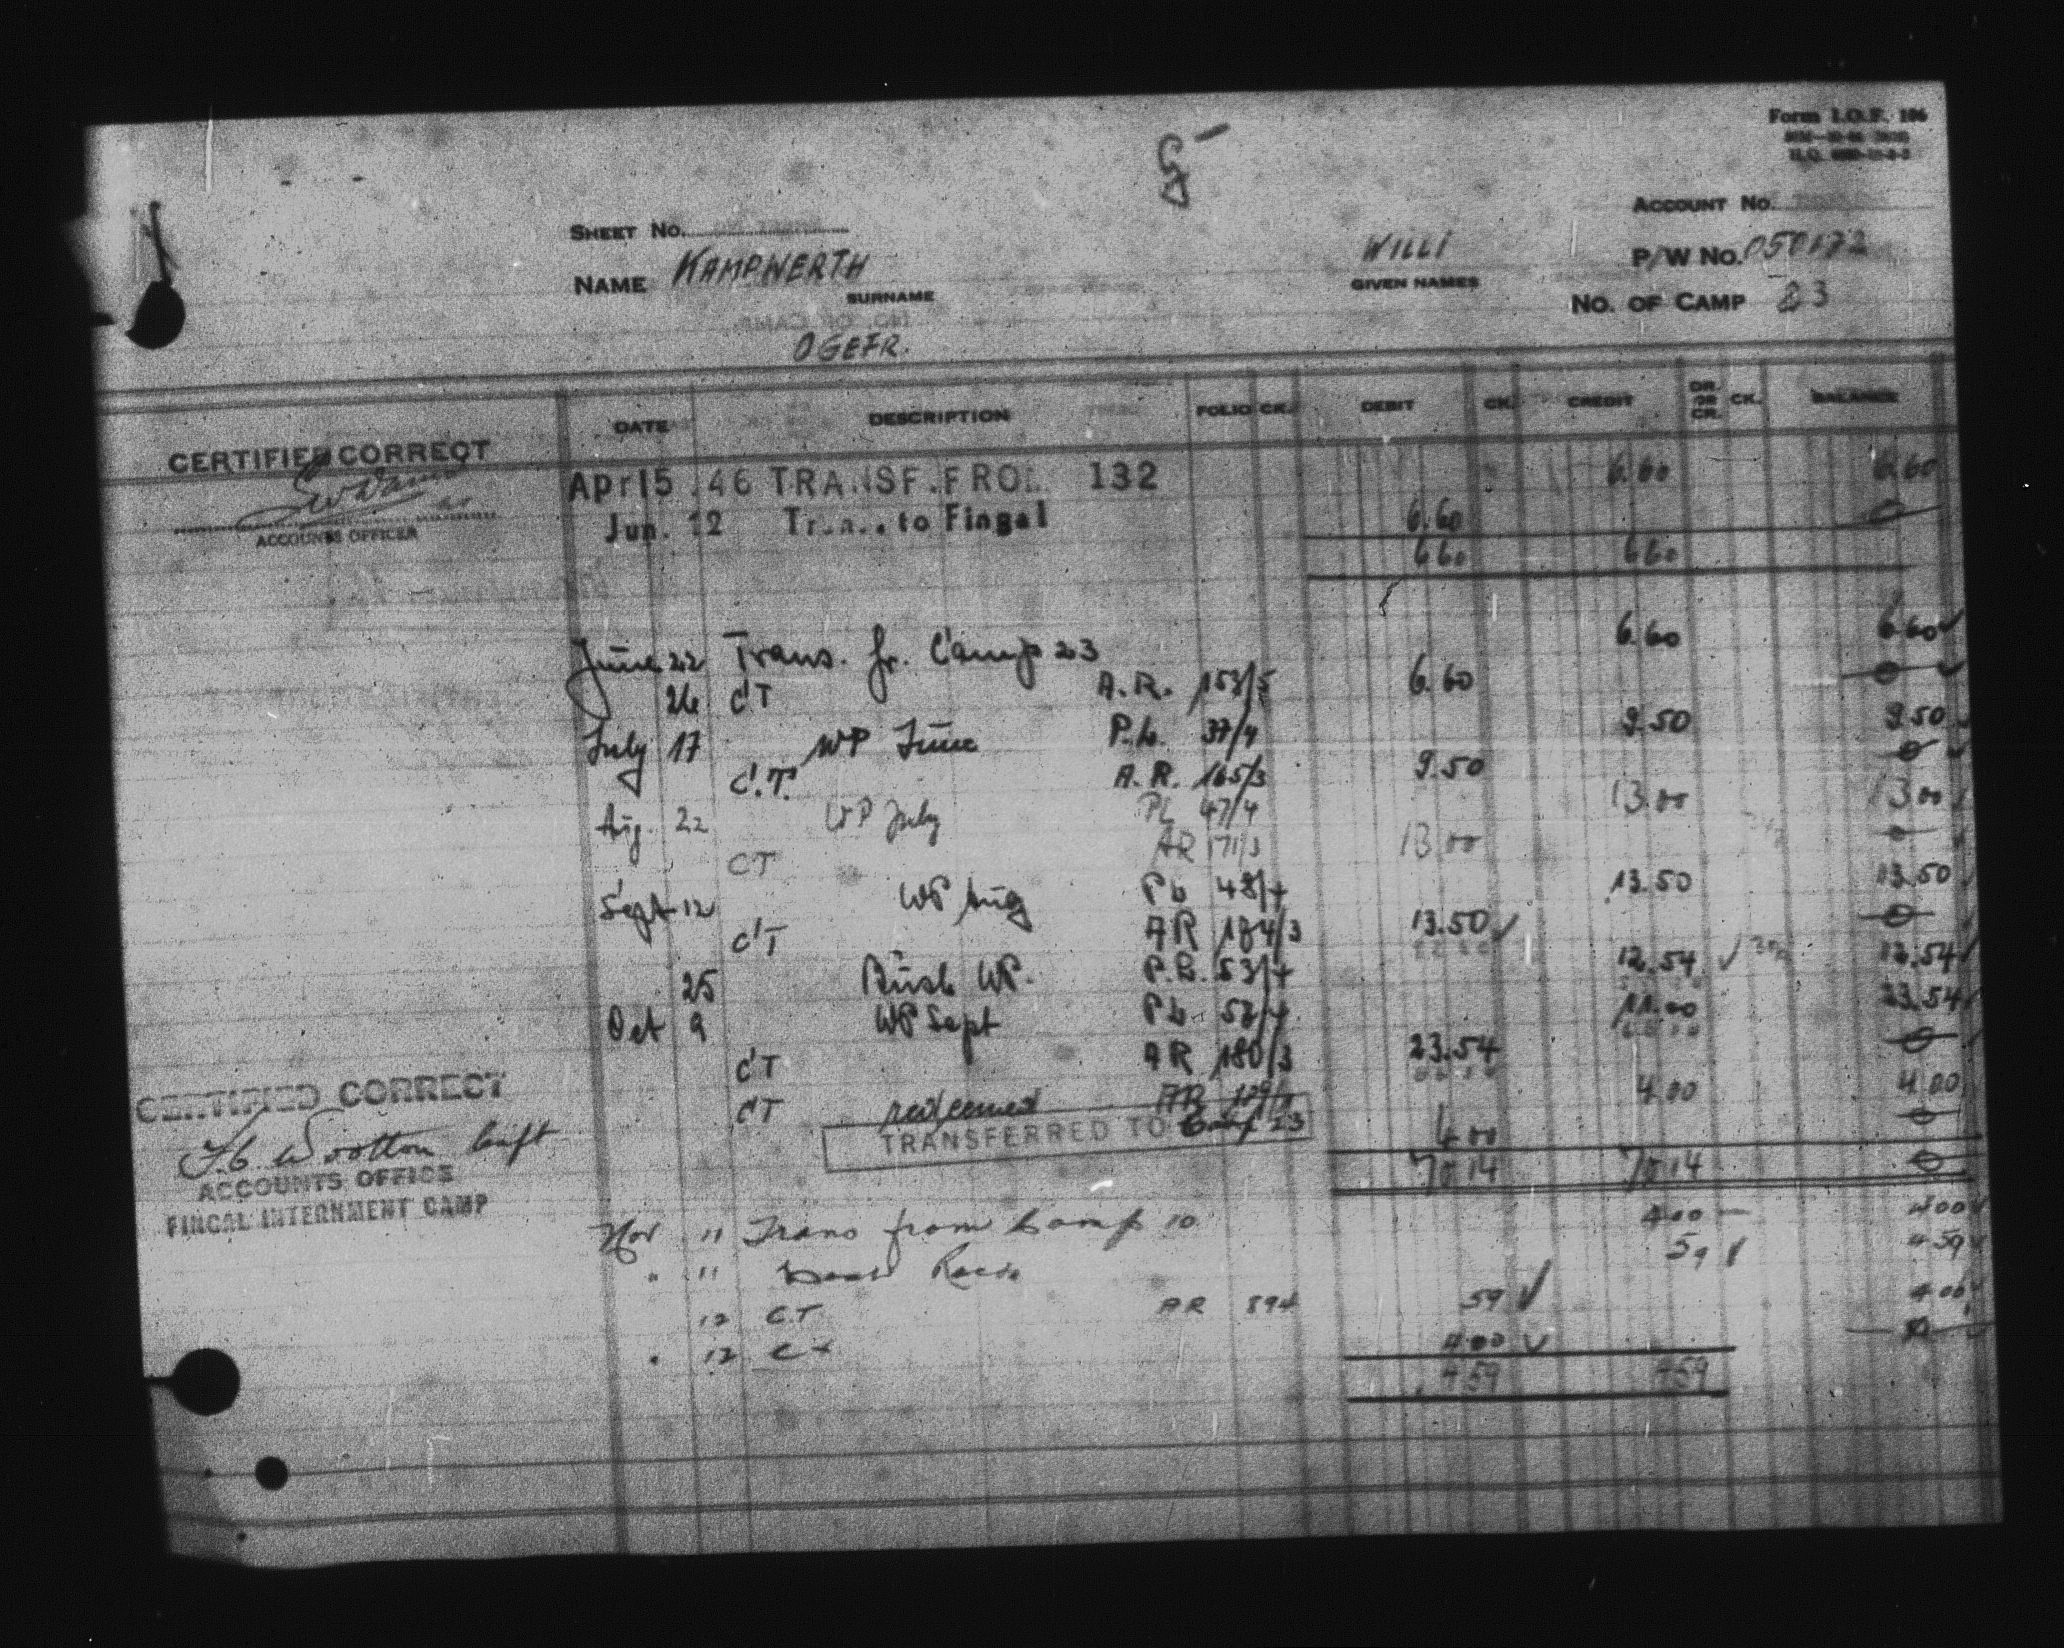 Form I.O.F. 106
SHEET No.
ACCOUNT No.
NAME KAMPWERTH
WILLI
P/W No. 050172
SURNAME
GIVEN NAMES
No. OF CAMP 23
OGEFR.
DATE DESCRIPTION FOLIO CK. DEBIT CK. CREDIT DR. OR CR. CK. BALANCE
CERTIFIED CORRECT
ACCOUNTS OFFICER
Apr15.46 TRANSF.FROM 132 6.60 6.60
Jun. 12 Trans. to Fingal 6.60 0
6 60 6 60
June 22 Trans. fr. Camp 23 6.60 6.60 ✓
26 CT A.R. 153/5 6.60 0 ✓
July 17 WP June P.L. 37/4 9.50 9.50 ✓
C.T. A.R. 165/3 9.50 0 ✓
Aug. 22 WP July PL 47/4 13.00 13.00 ✓
CT AR 171/3 13.00 0
Sept 12 WP Aug PL 48/4 13.50 13.50 ✓
CT AR 174/3 13.50 ✓ 0
25 Bush WP. P.L. 53/4 12.54 ✓ 12.54 ✓
Oct 9 WP Sept PL 52/4 11.00 23.54 ✓
CT AR 180/3 23.54 0
CT redeemed AR 4.00 4.00
TRANSFERRED TO Camp 23 4.00 0
70 14 70 14 0
CERTIFIED CORRECT
F.C. Wootton Capt
ACCOUNTS OFFICE
FINGAL INTERNMENT CAMP
Nov 11 Trans from Camp 10 4.00 4.00
" 11 59 ✓ 4 59
12 CT AR 894 59 ✓ 4 00
" 12 CT 4.00 ✓
4 59 4 59